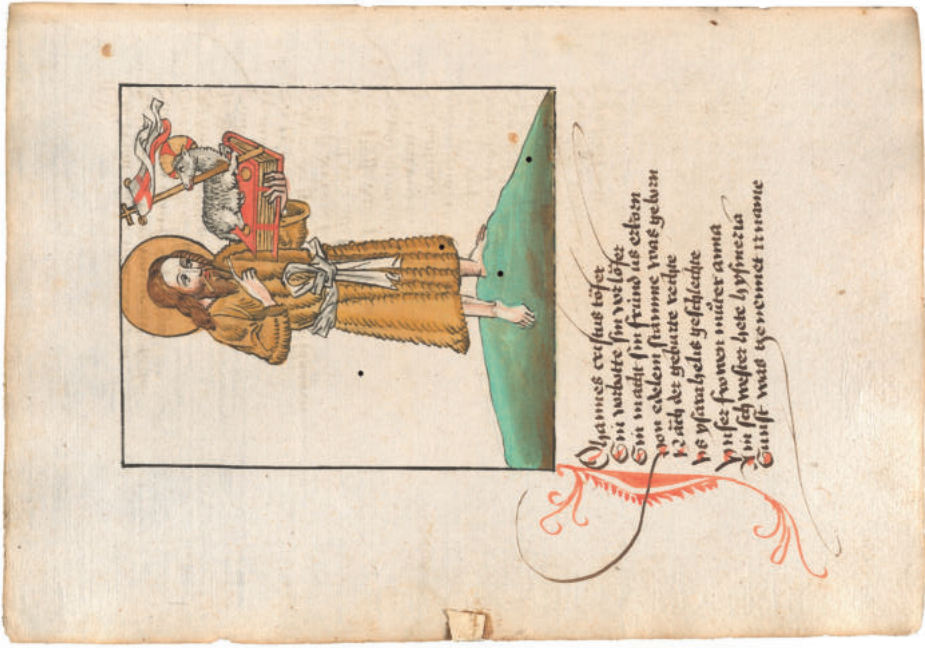 Johannes cristus töfer
Sin vorbotte sin vor löfer
Sin macht sin fründ us erkorn
von edelem stamme was geborn
Näch der geburte rechte
us ysarahelis geschlechte
Vnser frowen müter anna
Ein schwester hete hysmeria
Sunst was genennet ir name